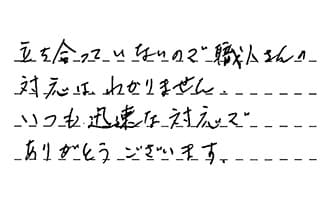 立ち合っていないので職人さんの
対応はわかりません。
いつも迅速な対応で
ありがとうございます。